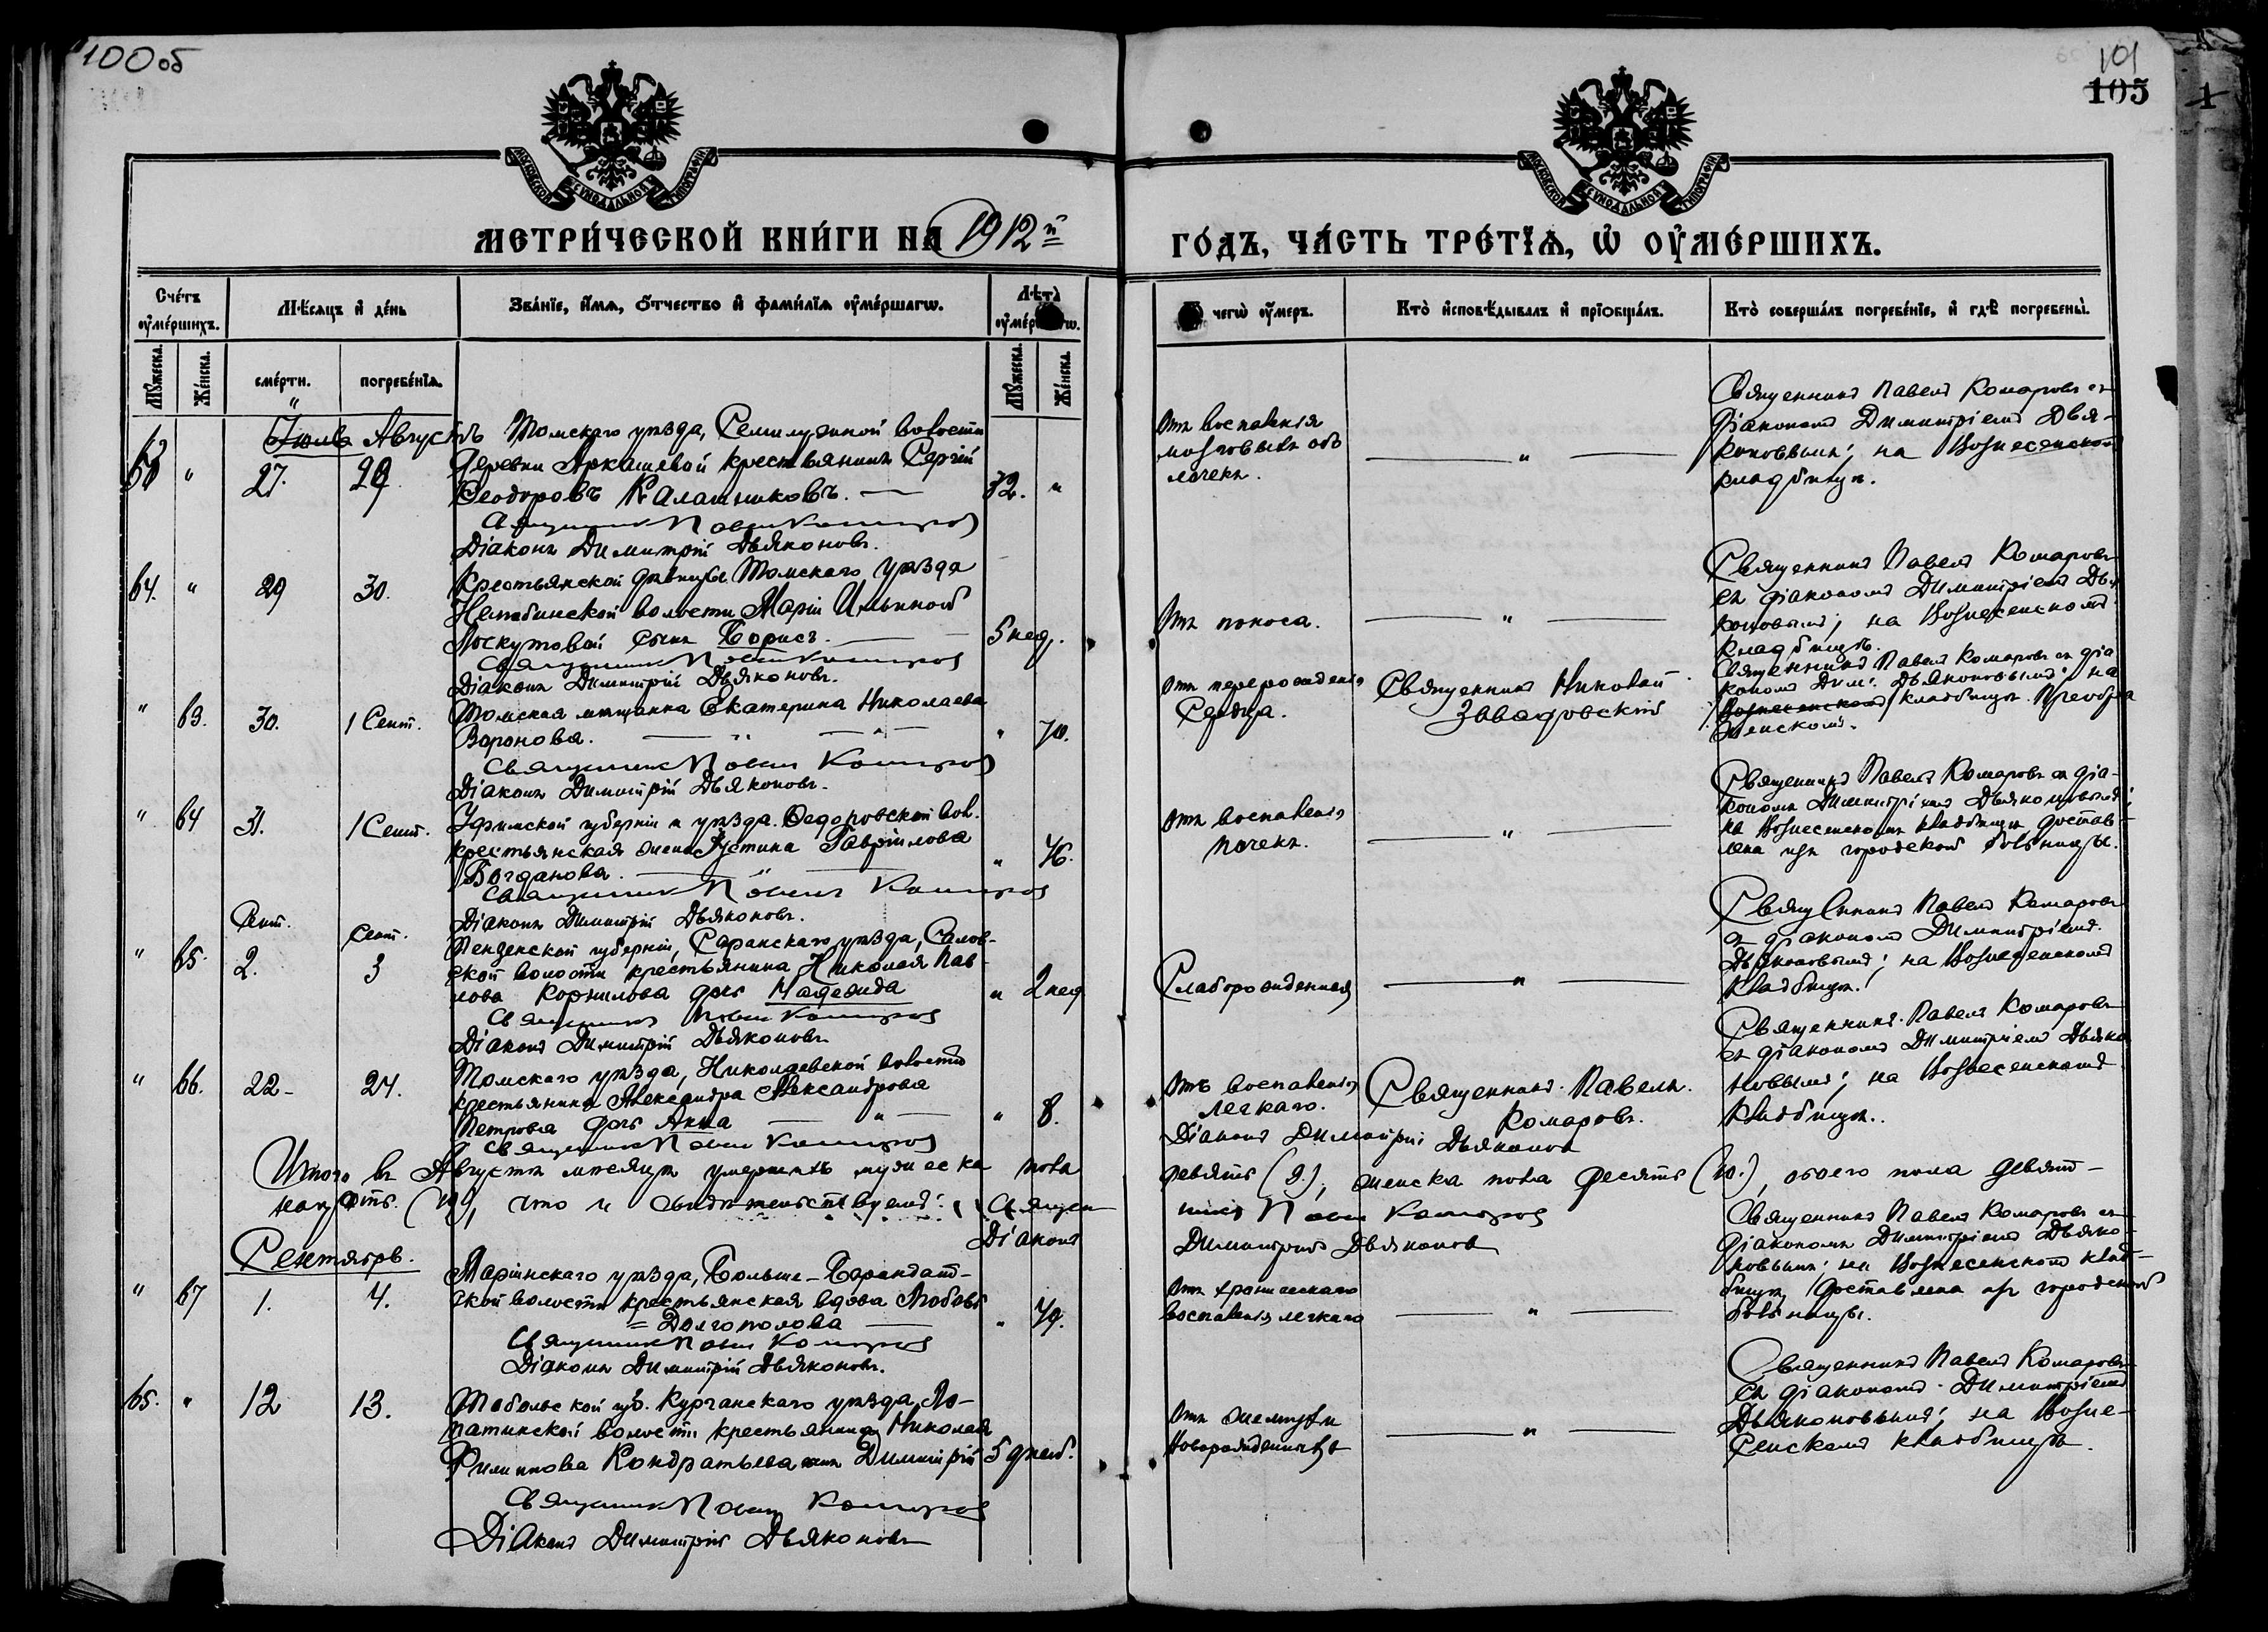 100 об
101
105
1
МОСКОВСКОЙ СУНОДАЛЬНОЙ ТИПОГРАФІИ
МОСКОВСКОЙ СУНОДАЛЬНОЙ ТИПОГРАФІИ
МЕТРИ́ЧЕСКОЙ КНИ́ГИ НА 1912й
ГО́ДЪ, ЧА́СТЬ ТРЕ́ТЇѦ, Ѡ҆ ОУ҆МЕ́РШИХЪ.
Сче́тъ оу҆ме́ршихъ.
Мѣ́сяцъ и҆ де́нь
Зва́нїе, и҆́мѧ, о҆́тчество и҆ фами́лїѧ оу҆ме́ршагѡ.
Лѣ́та оу҆ме́ршагѡ.
чегѡ̀ оу҆́меръ.
Кто̀ и҆сповѣ́дывалъ и҆ прїѻбща́лъ.
Кто̀ соверша́лъ погребе́нїе, и҆ гдѣ̀ погребены̀.
Мꙋ́жеска.
Же́нска.
сме́рти.
погребе́нїѧ.
Мꙋ́жеска.
Же́нска.
Іюль Августъ
63
"
27.
29
Томскаго уѣзда, Семилужной волости
деревни Аркашевой крестьянинъ Сергій
Ѳеодоровъ Калашниковъ.
32.
"
Священник Павел Комаров
Діаконъ Димитрій Дьяконовъ.
Отъ воспаленія
мозговыхъ обо
лочекъ.
"
Священникъ Павелъ Комаровъ съ
діакономъ Димитріемъ Дья-
коновымъ; на Вознесенскомъ
кладбищѣ.
64.
"
29
30.
Крестьянской дѣвицы Томскаго уѣзда
Нелюбинской волости Маріи Ильиной
Лоскутовой сынъ Борисъ.
5 нед.
Священник Павел Комаров
Діаконъ Димитрій Дьяконовъ.
Отъ поноса.
"
Священникъ Павелъ Комаровъ
съ діакономъ Димитріемъ Дья
коновымъ; на Вознесенскомъ
кладбищѣ.
"
63.
30.
1 Сент.
Томская мѣщанка Екатерина Николаева
Воронова.
"
70.
Священник Павел Комаров
Діаконъ Димитрій Дьяконовъ.
Отъ перерожденія
Сердца.
Священникъ Николай
Завадовскій
Священникъ Павелъ Комаровъ съ діа
кономъ Дим. Дьяконовымъ; на
Вознесенскомъ кладбищѣ. Преобра
женскомъ.
"
64
31.
1 Сент.
Уфимской губерніи и уѣзда. Ѳедоровской вол.
крестьянская жена Устина Гавріилова
Богданова.
"
46.
Священник Павел Комаров
Діаконъ Димитрій Дьяконовъ.
Отъ воспаленія
почекъ.
"
Священникъ Павелъ Комаровъ съ діа-
кономъ Димитріемъ Дьяконовымъ;
на Вознесенскомъ кладбищѣ достав-
лена изъ городской больницы.
Сент.
Сент.
"
65.
2.
3
Пензенской губерніи, Саранскаго уѣзда,
ской волости крестьянина Николая Пав-
лова Корнилова дочь Надежда
"
2 нед
Священник Павел Комаров
Діаконъ Димитрій Дьяконовъ
Слаборожденная
"
Священникъ Павелъ Комаровъ
съ діакономъ Димитріемъ
Дьяконовымъ; на Вознесенскомъ
кладбищѣ.
"
66.
22-
24.
Томскаго уѣзда, Николаевской волости
крестьянина Александра Александрова
Петрова дочь Анна
"
8.
Священник Павел Комаров
Отъ воспаленія
легкаго.
Священникъ Павелъ
Комаровъ.
Діаконъ Димитрій Дьяконов
Священникъ Павелъ Комаровъ
съ діакономъ Димитріемъ Дьяко
новымъ; на Вознесенскомъ
кладбищѣ.
Итого въ Августѣ мѣсяцѣ умершихъ мужеска пола девять (9), женска пола десять (10.), обоего пола девят-
надцать. (19), что и свидѣтельствуемъ: Священ
никъ Павел Комаров
Діаконъ Димитрій Дьяконов
Сентябрь.
"
67
1.
4.
Маріинскаго уѣзда, Больше-Барандат-
ской волости крестьянская вдова Любовь
Долгополова
"
49.
Священник Павел Комаров
Діаконъ Димитрій Дьяконовъ.
Отъ хроническаго
воспаленія легкаго
"
Священникъ Павелъ Комаровъ съ
діакономъ Димитріемъ Дьяко-
новымъ; на Вознесенскомъ клад-
бищѣ, доставлена изъ городской
больницы.
65.
"
12
13.
Тобольской губ. Курганскаго уѣзда, Ло-
патинской волости крестьянина Николая
Филиппова Кондратьева сынъ Димитрій
5 дней.
Священник Павел Комаров
Діаконъ Димитрій Дьяконовъ
Отъ желтухи
новорожденныхъ
"
Священникъ Павелъ Комаровъ
съ діакономъ Димитріемъ
Дьяконовымъ; на Возне-
сенскомъ кладбищѣ.